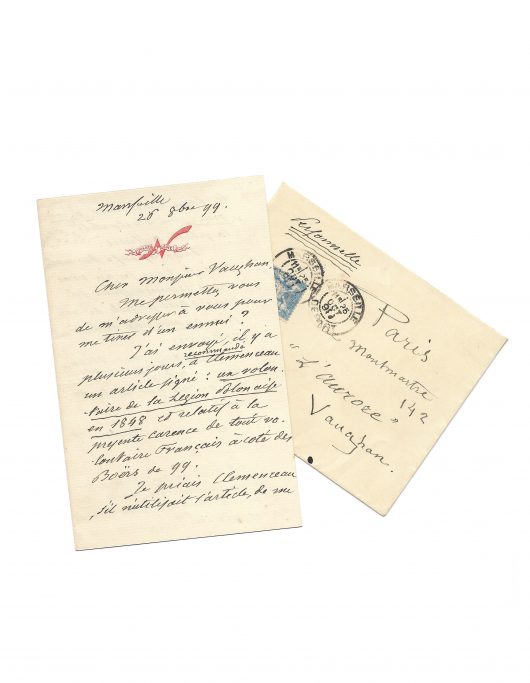 Marseille
26 8bre 99.
Cher Monsieur Vaughan,
Me permettez vous
de m'adresser à vous pour
me tirer d'un ennui ?
J'ai envoyé, il y a
plusieurs jours, recommandé à Clemenceau
un article signé : un volon-
taire de la Légion Polonaise
en 1848 et relatif à la
présente carence de tout vo-
lontaire Français à côté des
Boërs de 99.
Je priais Clemenceau
s'il n'utilisait l'article, de me
Personnelle
MARSEILLE
MARSEILLE
Paris
142 Montmartre
"L'aurore"
Vaughan.